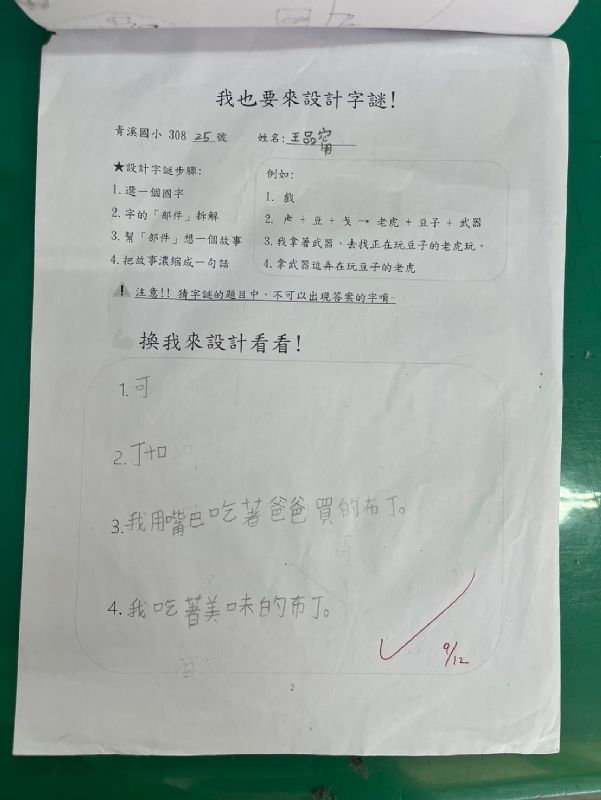 我也要來設計字謎!
青溪國小 308 25 號 姓名: 王品甯
★設計字謎步驟:
1. 選一個國字
2. 字的「部件」拆解
3. 幫「部件」想一個故事
4. 把故事濃縮成一句話
例如:
1. 戲
2. 虍 + 豆 + 戈 → 老虎 + 豆子 + 武器
3. 我拿著武器,去找正在玩豆子的老虎玩。
4. 拿武器逗弄在玩豆子的老虎
! 注意!! 猜字謎的題目中,不可以出現答案的字唷~
換我來設計看看!
1. 可
2. 丁+口
3. 我用嘴巴吃著爸爸買的布丁。
4. 我吃著美味的布丁。
9/12
2